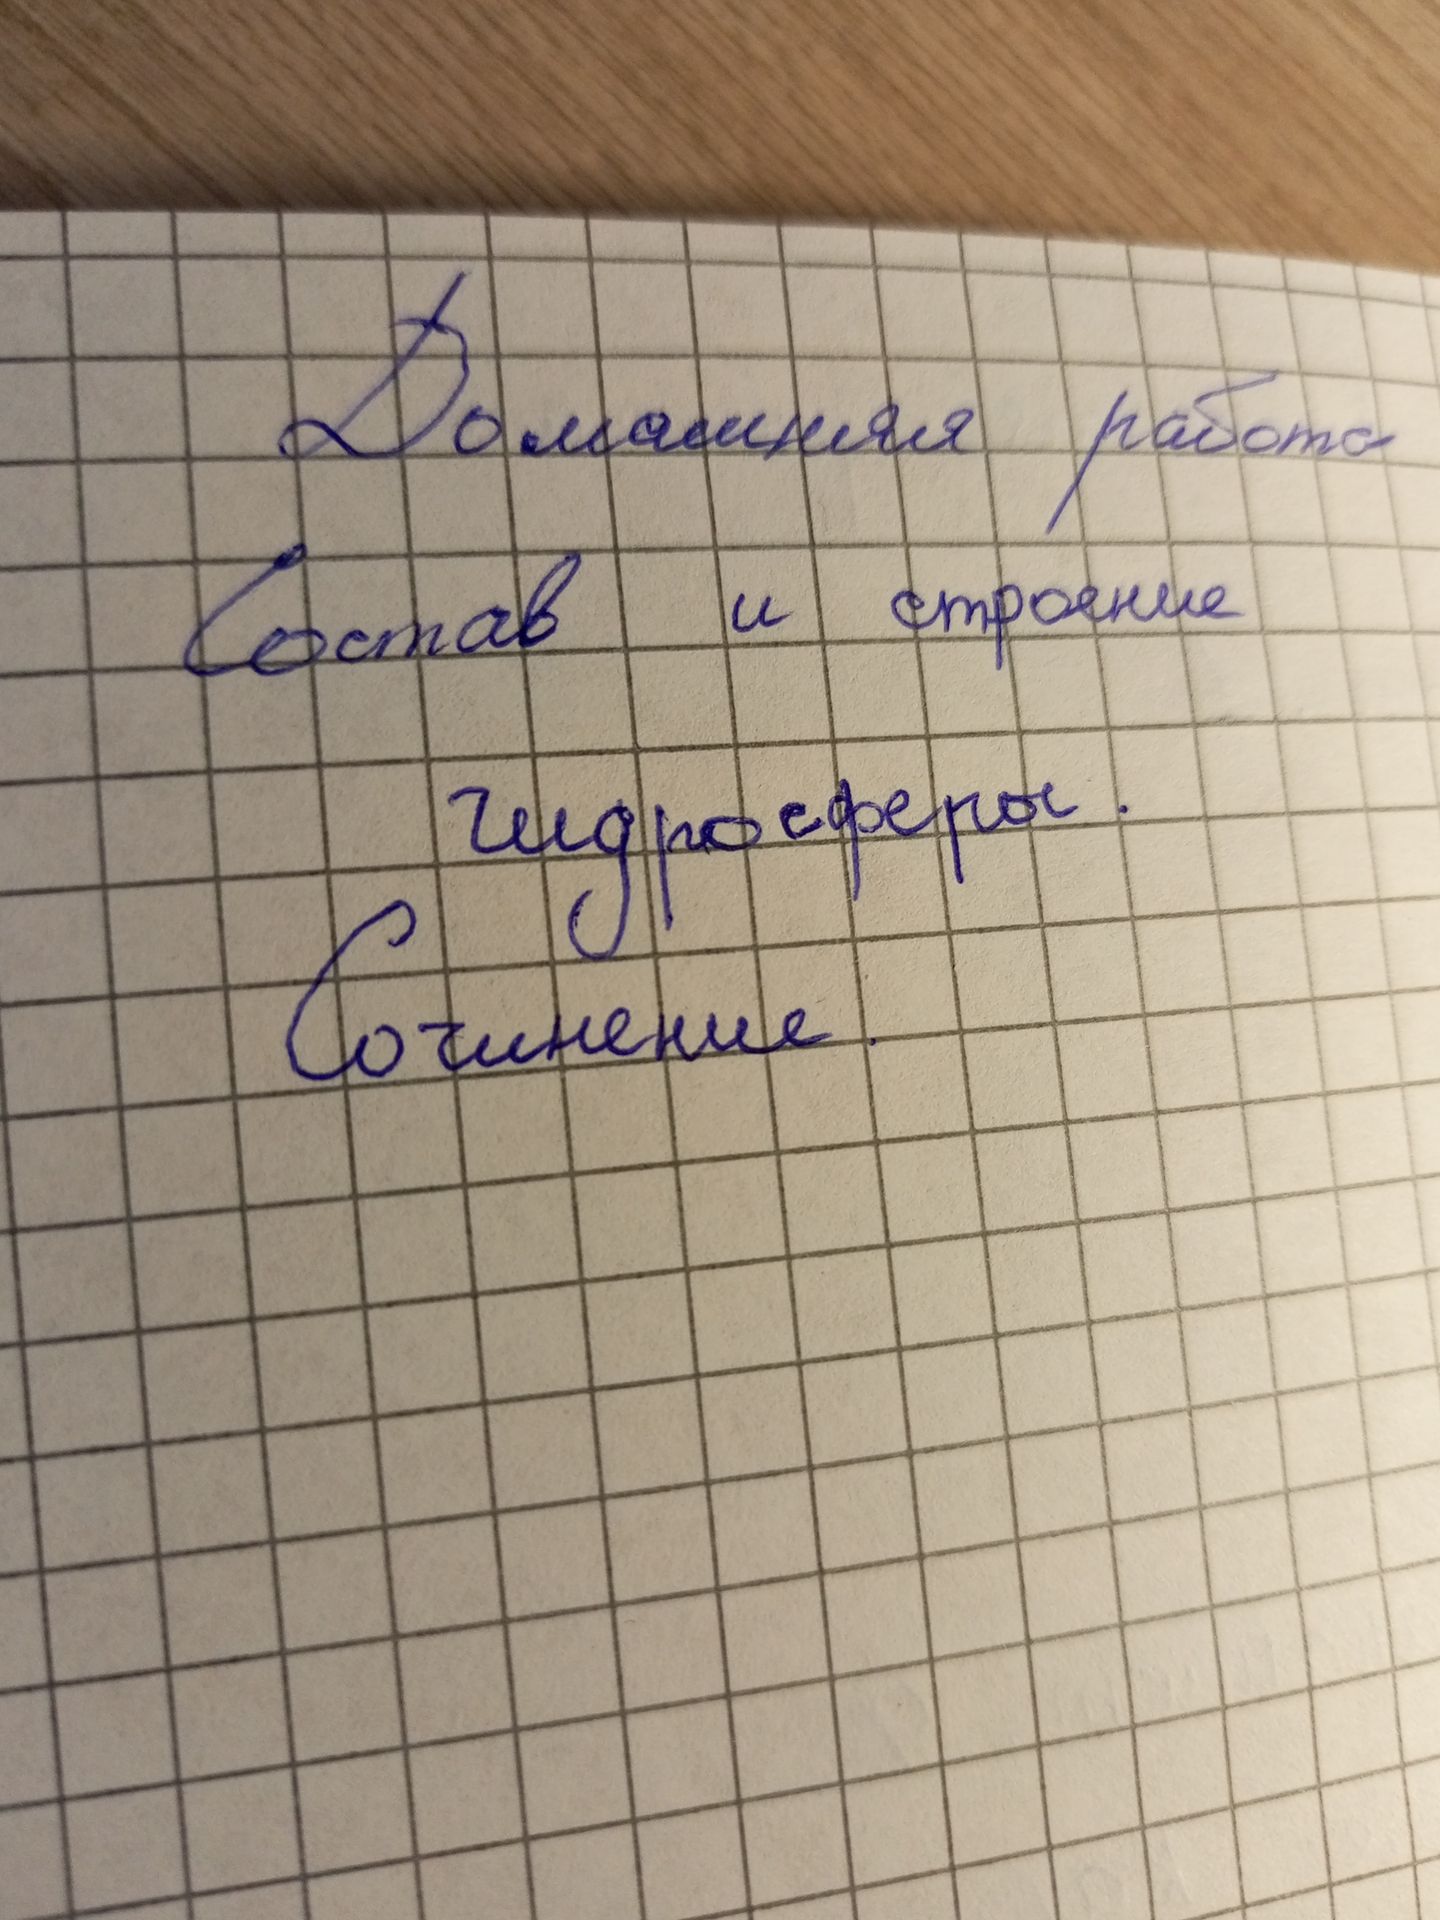 Домашняя работа
Состав и строение
гидросферы.
Сочинение.